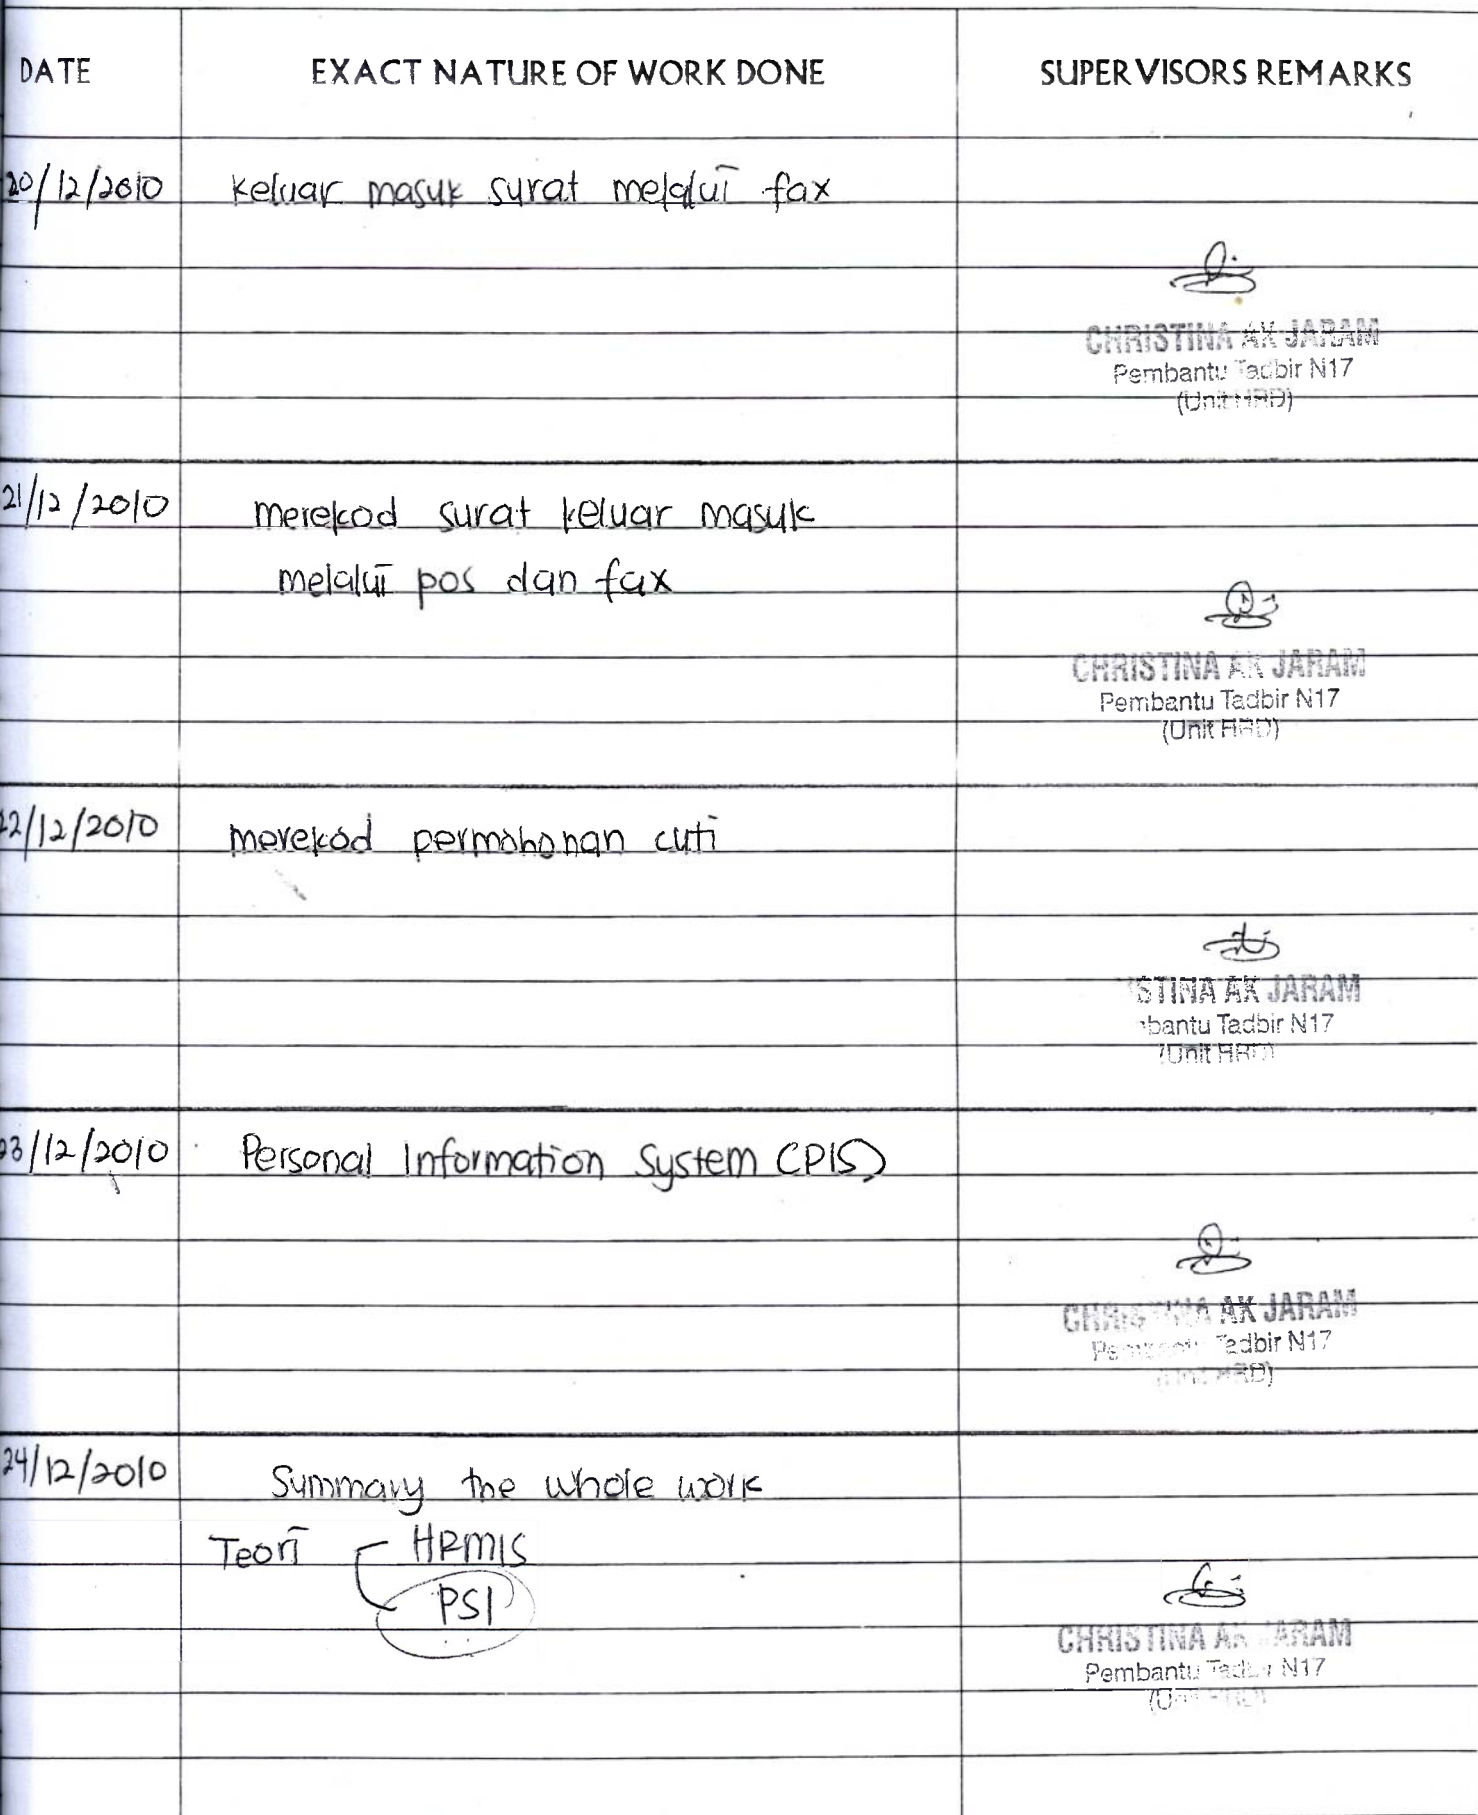 DATE EXACT NATURE OF WORK DONE SUPERVISORS REMARKS
20/12/2010 keluar masuk surat melalui fax
CHRISTINA AK JARAM
Pembantu Tadbir N17
(Unit HRD)
21/12/2010 merekod surat keluar masuk
melalui pos dan fax
CHRISTINA AK JARAM
Pembantu Tadbir N17
(Unit HRD)
22/12/2010 merekod permohonan cuti
STINA AK JARAM
bantu Tadbir N17
(Unit HRD)
23/12/2010 Personal Information System (PIS)
CHRISTINA AK JARAM
Pembantu Tadbir N17
(Unit HRD)
24/12/2010 Summary the whole work
Teori HRMIS
PSI
CHRISTINA AK JARAM
Pembantu Tadbir N17